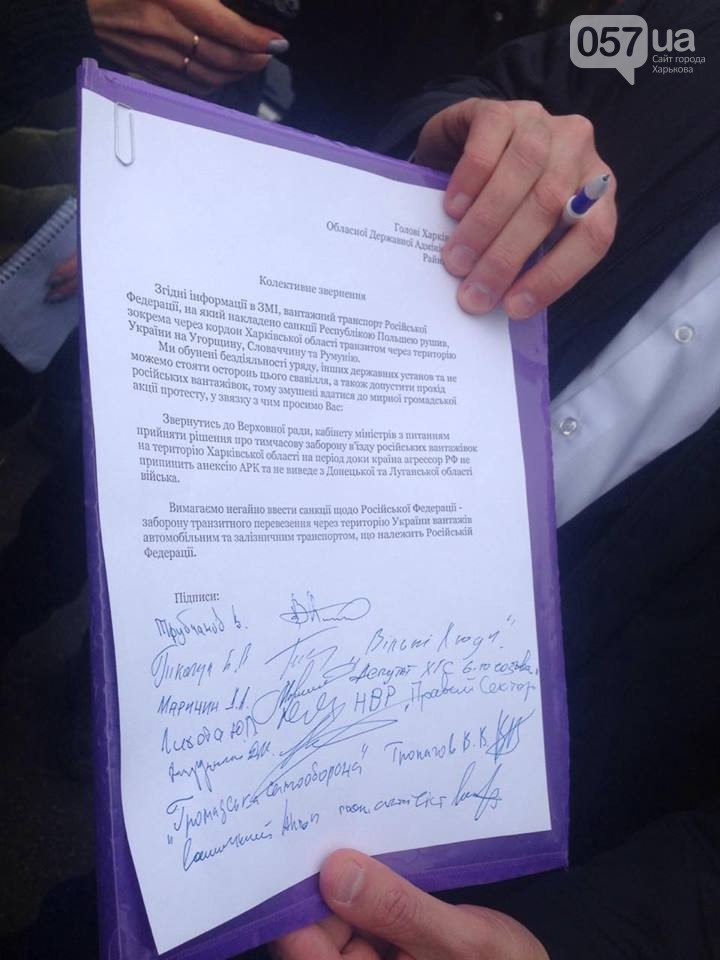 057 ua
Сайт города
Харькова
Голові Харків
Обласної Державної Адміні
Райн
Колективне звернення
Згідні інформації в ЗМІ, вантажний транспорт Російської
Федерації, на який накладено санкції Республікою Польшею рушив,
зокрема через кордон Харківської області транзитом через територію
України на Угорщину, Словаччину та Румунію.
Ми обунені бездіяльності уряду, інших державних установ та не
можемо стояти осторонь цього свавілля, а також допустити прохід
російських вантажівок, тому змушені вдатися до мирної громадської
акції протесту, у звязку з чим просимо Вас:
Звернутись до Верховної ради, кабінету міністрів з питанням
прийняти рішення про тимчасову заборону в'їзду російських вантажівок
на територію Харківської області на період доки країна агрессор РФ не
припинить анексію АРК та не виведе з Донецької та Луганської області
війська.
Вимагаємо негайно ввести санкції щодо Російської Федерації -
заборону транзитного перевезення через територію України вантажів
автомобільним та залізничним транспортом, що належить Російській
Федерації.
Підписи:
Трубчанов В.
Пікалуа Б.В "Вільні Люди".
Маринин Депутат ХГС 6-го созыва
Лихота Ю.П. НВР "Правий Сектор
"Громадська самооборона" Тропачов В.В.